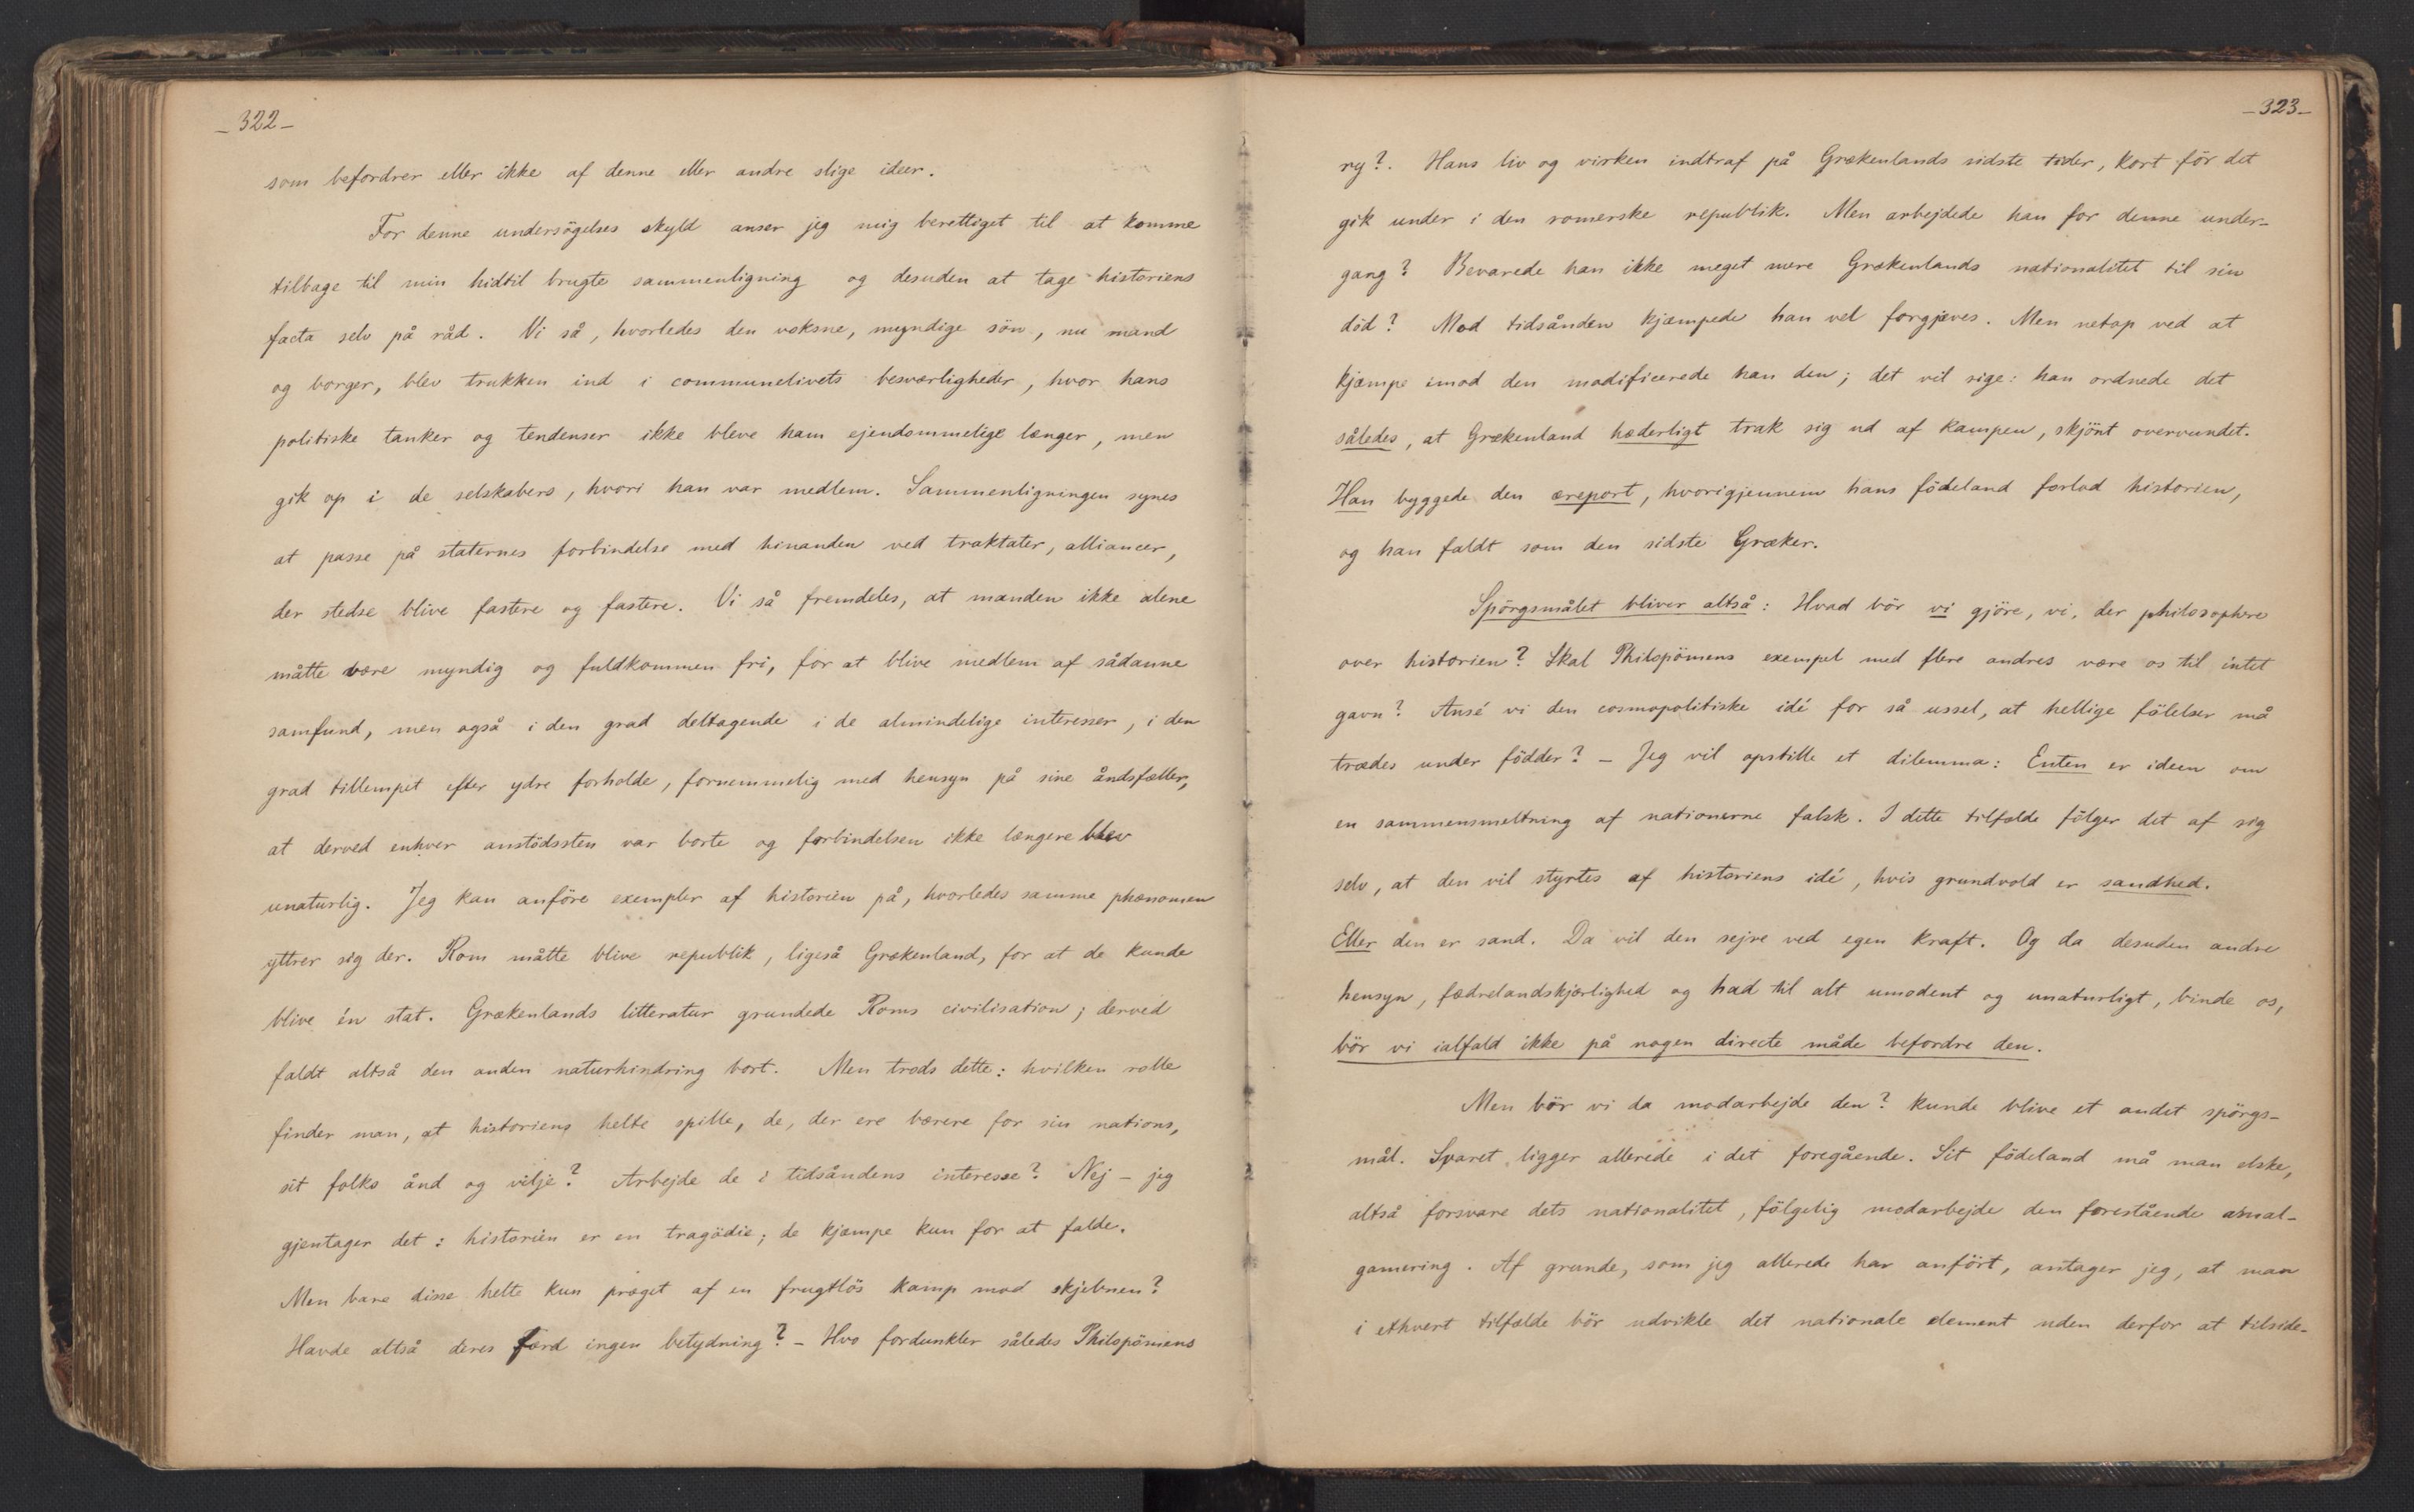 _ 322 _
som befordrer eller ikke af denne eller andre slige ideer.
For denne undersögelses skyld anser jeg mig berettiget til at komme
tilbage til min hidtil brugte sammenligning og desuden at tage historiens
facta selv på råd. Vi så, hvorledes den voksne, myndige sön, nu mand
og borger, blev trukken ind i communelivets besværligheder, hvor hans
politiske tanker og tendenser ikke bleve ham ejendommelige længer, men
gik op i de selskabers, hvori han var medlem. Sammenligningen synes
at passe på staternes forbindelse med hinanden ved traktater, alliancer,
der stedse blive fastere og fastere. Vi så fremdeles, at manden ikke alene
måtte være myndig og fuldkommen fri, for at blive medlem af sådanne
samfund, men også i den grad deltagende i de almindelige interesser, i den
grad tillempet efter ydre forholde, fornemmelig med hensyn på sine åndsfæller,
at derved enhver anstödssten var borte og forbindelsen ikke længere blev
unaturlig. Jeg kan anföre exempler af historien på, hvorledes samme phænomen
yttrer sig der. Rom måtte blive republik, ligeså Grækenland, for at de kunde
blive én stat. Grækenlands litteratur grundede Roms civilisation; derved
faldt altså den anden naturhindring bort. Men trods dette: hvilken rolle
finder man, at historiens helte spille, de, der ere bærere for sin nations,
sit folks ånd og vilje? Arbejde de i tidsåndens interesse? Nej – jeg
gjentager det: historien er en tragödie; de kjæmpe kun for at falde.
Men bare disse helte kun præget af en frugtlös kamp mod skjebnen?
Havde altså deres færd ingen betydning? – Hvo fordunkler således Philopömens
_ 323 _
ry?. Hans liv og virken indtraf på Grækenlands sidste tider, kort för det
gik under i den romerske republik. Men arbejdede han for denne under-
gang? Bevarede han ikke meget mere Grækenlands nationalitet til sin
död? Mod tidsånden kjæmpede han vel forgjæves. Men netop ved at
kjæmpe imod den modificerede han den; det vil sige: han ordnede det
således, at Grækenland hæderligt trak sig ud af kampen, skjönt overvundet.
Han byggede den æreport, hvorigjennem hans födeland forlod historien,
og han faldt som den sidste Græker.
Spörgsmålet bliver altså: Hvad bör vi gjöre, vi, der philosophere
over historien? Skal Philopömens exempel med flere andres være os til intet
gavn? Ansé vi den cosmopolitiske idé for så ussel, at hellige fölelser må
trædes under födder? – Jeg vil opstille et dilemma: Enten er ideen om
en sammensmeltning af nationerne falsk. I dette tilfælde fölger det af sig
selv, at den vil styrtes af historiens idé, hvis grundvold er sandhed.
Eller den er sand. Da vil den sejre ved egen kraft. Og da desuden andre
hensyn, fædrelandskjærlighed og had til alt umodent og unaturligt, binde os,
bör vi ialfald ikke på nogen directe måde befordre den.
Men bör vi da modarbejde den? kunde blive et andet spörgs-
mål. Svaret ligger allerede i det foregående. Sit födeland må man elske,
altså forsvare dets nationalitet, fölgelig modarbejde den forestående amal-
gamering. Af grunde, som jeg allerede har anfört, antager jeg, at man
i ethvert tilfælde bör udvikle det nationale element uden derfor at tilside-